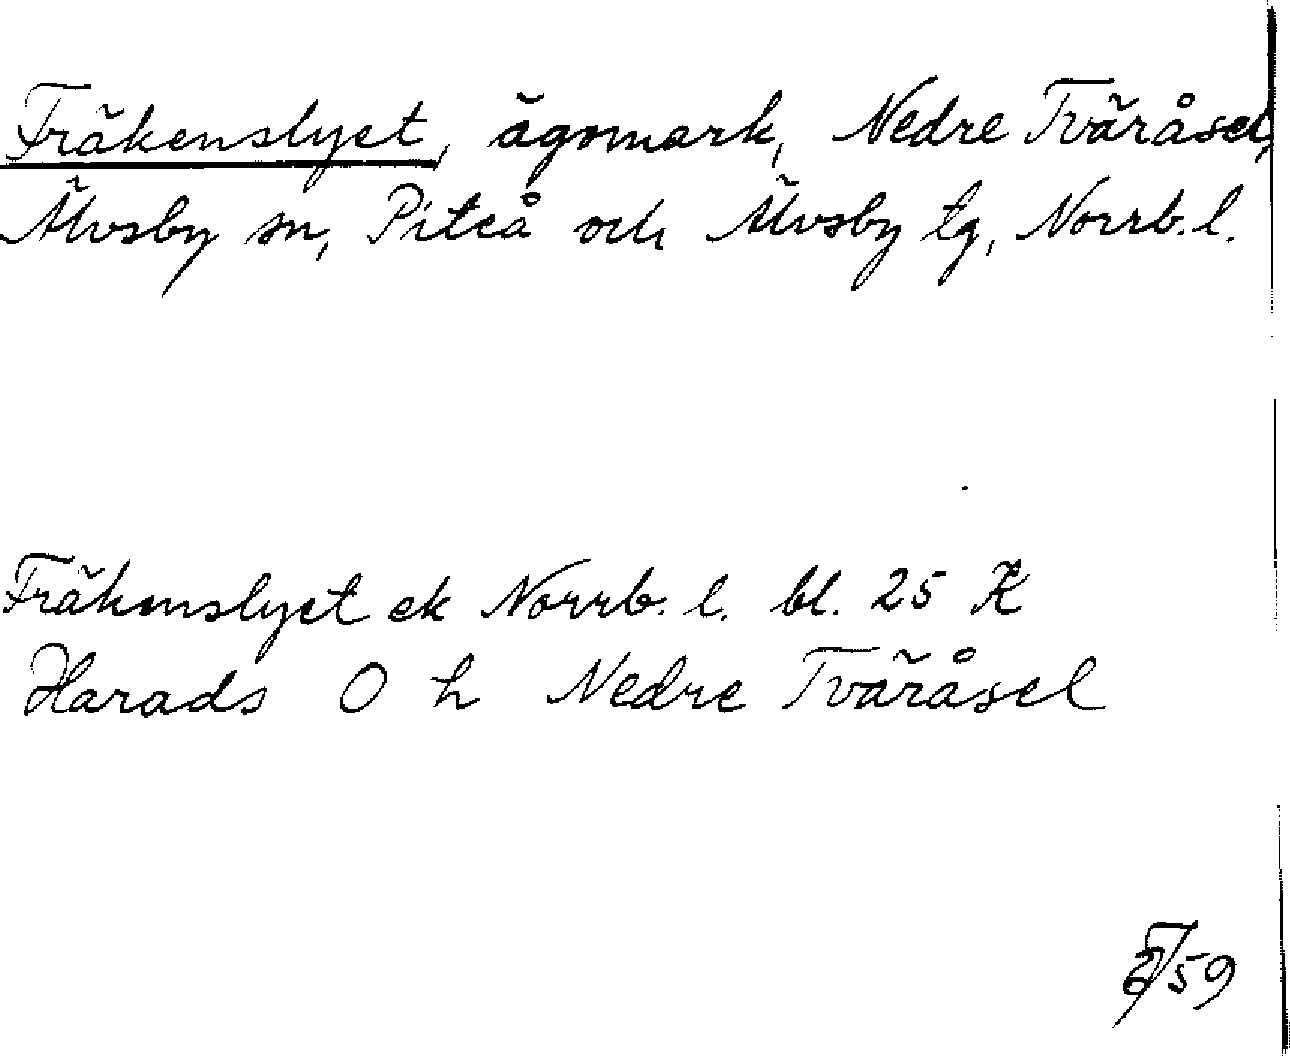 Fräkenslyet, ägomark, Nedre Tväråsel,
Älvsby sn, Piteå och Älvsby tg, Norrb. l.
Fräkenslyet ek Norrb. l. bl. 25
Harads O h Nedre Tväråsel
59